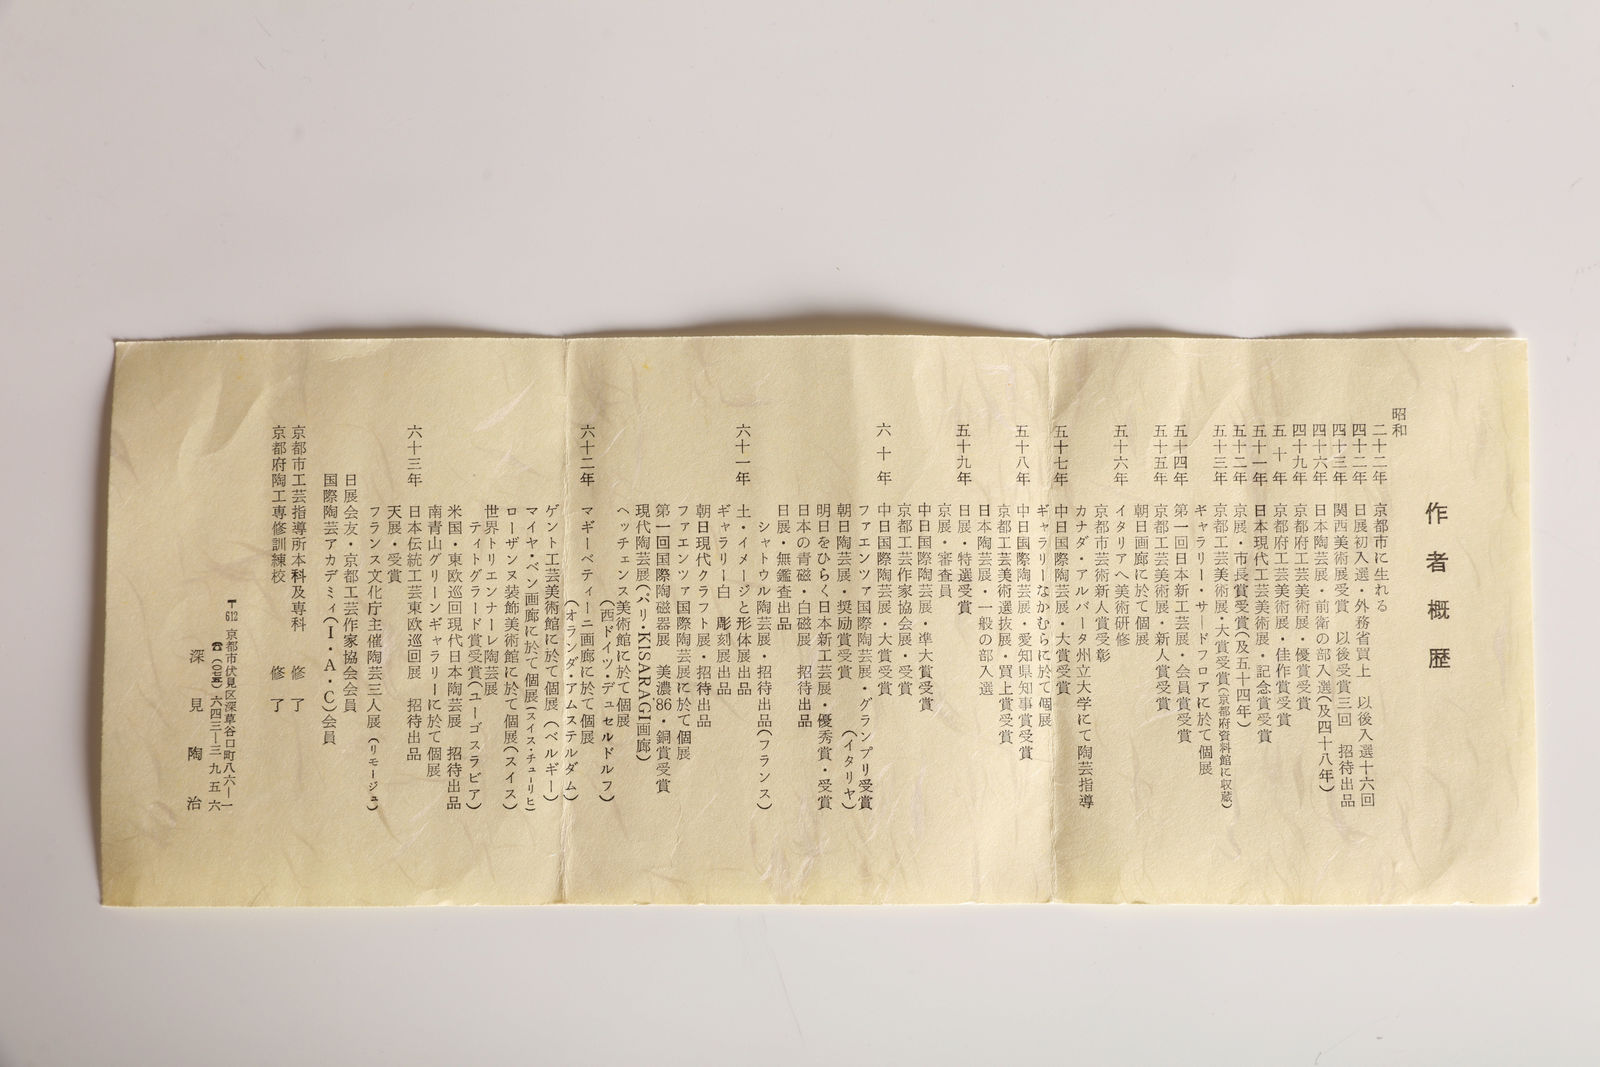 作者概歴
昭和
二十二年 京都市に生れる
四十二年 日展初入選・外務省買上 以後入選十六回
四十三年 関西美術展受賞 以後受賞三回 招待出品
四十六年 日本陶芸展・前衛の部入選(及四十八年)
四十九年 京都府工芸美術展・優賞受賞
五十年 京都府工芸美術展・佳作賞受賞
五十一年 日本現代工芸美術展・記念賞受賞
五十二年 京展・市長賞受賞(及五十四年)
五十三年 京都工芸美術展・大賞受賞(京都府資料館に収蔵)
ギャラリー・サードフロアに於て個展
五十四年 第一回日本新工芸展・会員賞受賞
五十五年 京都工芸美術展・新人賞受賞
朝日画廊に於て個展
五十六年 イタリアへ美術研修
京都市芸術新人賞受彰
カナダ・アルバータ州立大学にて陶芸指導
五十七年 中日国際陶芸展・大賞受賞
ギャラリーなかむらに於て個展
五十八年 中日国際陶芸展・愛知県知事賞受賞
京都工芸美術選抜展・買上賞受賞
日本陶芸展・一般の部入選
五十九年 日展・特選受賞
京展・審査員
中日国際陶芸展・準大賞受賞
京都工芸作家協会展・受賞
六十年 中日国際陶芸展・大賞受賞
ファエンツァ国際陶芸展・グランプリ受賞
(イタリヤ)
朝日陶芸展・奨励賞受賞
明日をひらく日本新工芸展・優秀賞・受賞
日本の青磁・白磁展 招待出品
日展・無鑑査出品
シャトウル陶芸展・招待出品(フランス)
六十一年 土・イメージと形体展出品
ギャラリー白 彫刻展出品
朝日現代クラフト展・招待出品
ファエンツァ国際陶芸展に於て個展
第一回国際陶磁器展 美濃86・銅賞受賞
現代陶芸展(パリ・KISARAGI画廊)
ヘッチェンス美術館に於て個展
(西ドイツ・デュセルドルフ)
六十二年 マギーベティーニ画廊に於て個展
(オランダ・アムステルダム)
ゲント工芸美術館に於て個展(ベルギー)
マイヤ・ベン画廊に於て個展(スイス・チューリヒ)
ローザンヌ装飾美術館に於て個展(スイス)
世界トリエンナーレ陶芸展
ティトグラード賞受賞(ユーゴスラビア)
米国・東欧巡回現代日本陶芸展 招待出品
南青山グリーンギャラリーに於て個展
六十三年 日本伝統工芸東欧巡回展 招待出品
天展・受賞
フランス文化庁主催陶芸三人展(リモージュ)
日展会友・京都工芸作家協会会員
国際陶芸アカデミィ(I・A・C)会員
京都市工芸指導所本科及専科 修了
京都府陶工専修訓練校 修了
〒612 京都市伏見区深草谷口町八六―一
☎(〇七五)六四三―三九五六
深見陶治